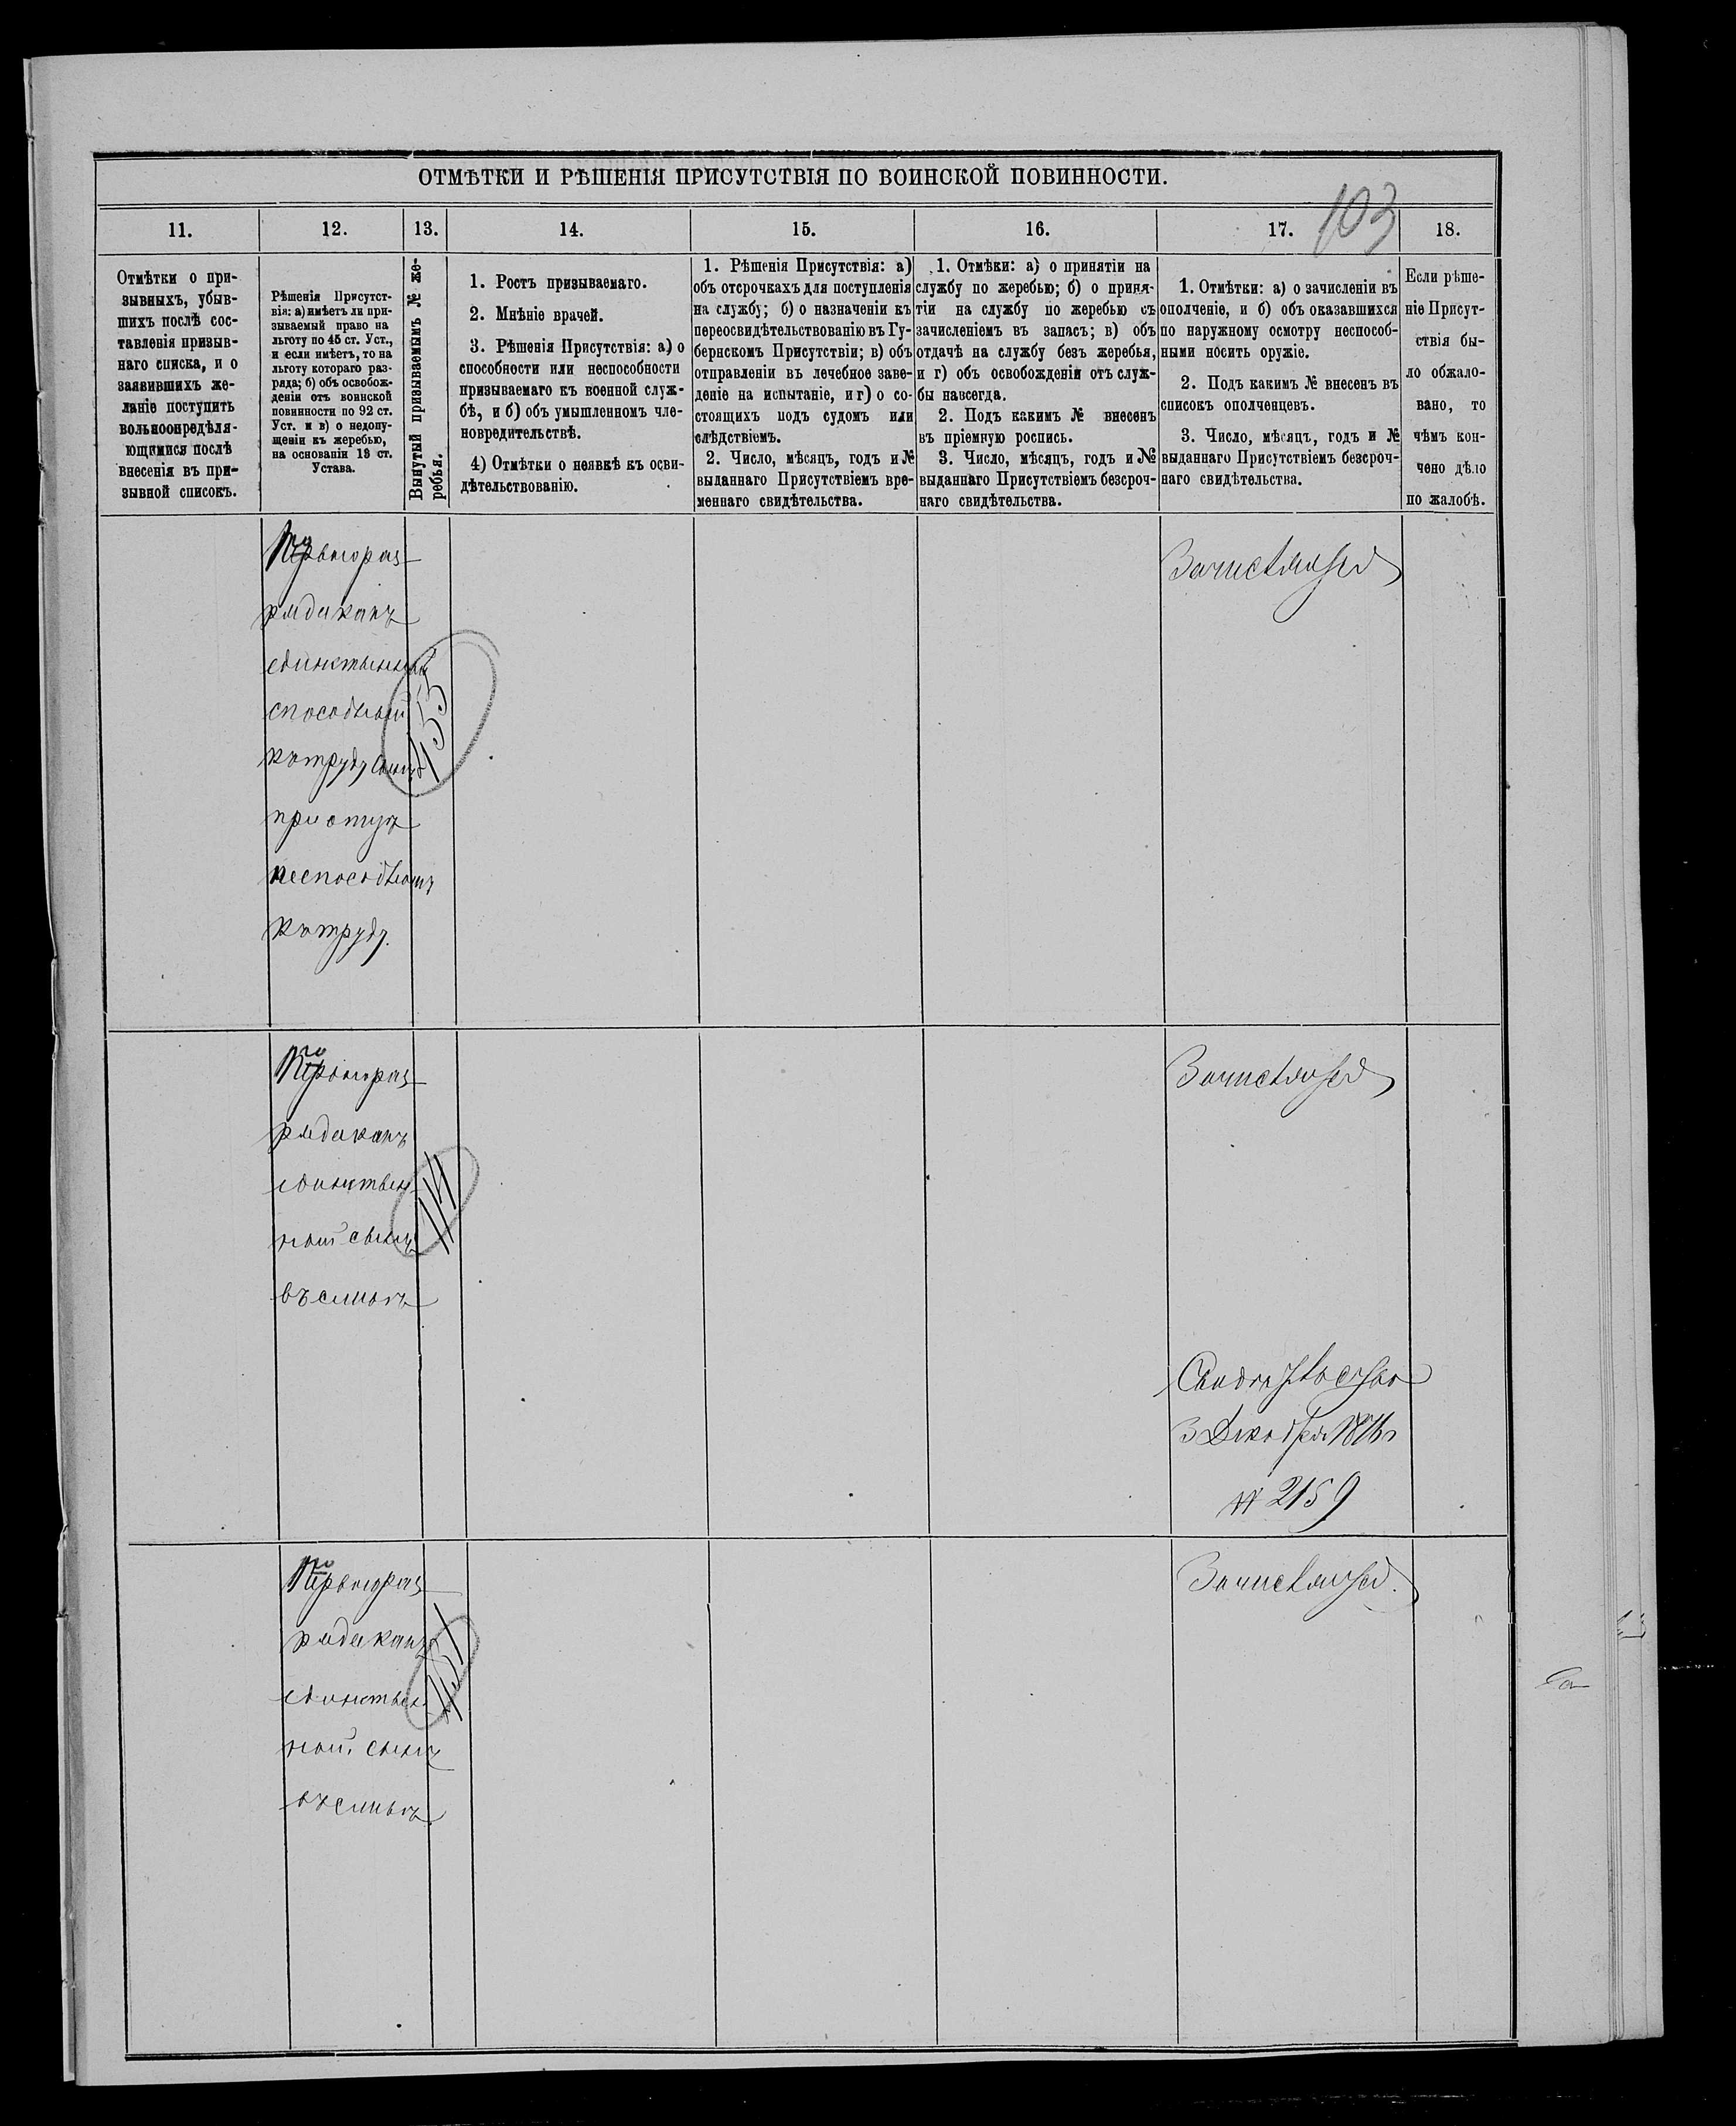 ОТМѢТКИ И РѢШЕНІЯ ПРИСУТСТВІЯ ПО ВОИНСКОЙ ПОВИННОСТИ.
103
11.
12.
13.
14.
15.
16.
17.
18.
Отмѣтки о при-
зывныхъ, убыв-
шихъ послѣ сос-
тавленія призыв-
наго списка, и о
заявившихъ же-
ланіе поступить
вольноопредѣля-
ющимися послѣ
внесенія въ при-
зывной списокъ.
Рѣшенія Присутст-
вія: а) имѣетъ ли при-
зываемый право на
льготу по 45 ст. Уст.,
и если имѣетъ, то на
льготу котораго раз-
ряда; б) объ освобож-
деніи отъ воинской
повинности по 92 ст.
Уст. и в) о недопу-
щеніи къ жеребью,
на основаніи 13 ст.
Устава.
Вынутый призываемымъ № же-
ребья.
1. Ростъ призываемаго.
2. Мнѣніе врачей.
3. Рѣшенія Присутствія: а) о
способности или неспособности
призываемаго къ военной служ-
бѣ, и б) объ умышленномъ чле-
новредительствѣ.
4) Отмѣтки о неявкѣ къ осви-
дѣтельствованію.
1. Рѣшенія Присутствія: а)
объ отсрочкахъ для поступленія
на службу; б) о назначеніи къ
переосвидѣтельствованію въ Гу-
бернскомъ Присутствіи; в) объ
отправленіи въ лечебное заве-
деніе на испытаніе, и г) о со-
стоящихъ подъ судомъ или
слѣдствіемъ.
2. Число, мѣсяцъ, годъ и №
выданнаго Присутствіемъ вре-
меннаго свидѣтельства.
1. Отмѣки: а) о принятіи на
службу по жеребью; б) о приня-
тіи на службу по жеребью съ
зачисленіемъ въ запасъ; в) объ
отдачѣ на службу безъ жеребья,
и г) объ освобожденіи отъ служ-
бы навсегда.
2. Подъ какимъ № внесенъ
въ пріемную роспись.
3. Число, мѣсяцъ, годъ и №
выданнаго Присутствіемъ безсроч-
наго свидѣтельства.
1. Отмѣтки: а) о зачисленіи въ
ополченіе, и б) объ оказавшихся
по наружному осмотру неспособ-
ными носить оружіе.
2. Подъ какимъ № внесенъ въ
списокъ ополченцевъ.
3. Число, мѣсяцъ, годъ и №
выданнаго Присутствіемъ безсроч-
наго свидѣтельства.
Если рѣше-
ніе Присут-
ствія бы-
ло обжало-
вано, то
чѣмъ кон-
чено дѣло
по жалобѣ.
Перваго раз-
ряда какъ
единственный
способный
къ труду сынъ
при отцѣ
неспособномъ
къ труду.
455
Зачисляется
Перваго раз-
ряда какъ
единствен-
ный сынъ
въ семьѣ
114
Зачисляется
Свидѣтельство
3 Декабря
№ 2159
Перваго раз-
ряда какъ
единствен-
ный сынъ
въ семьѣ
Зачисляется.